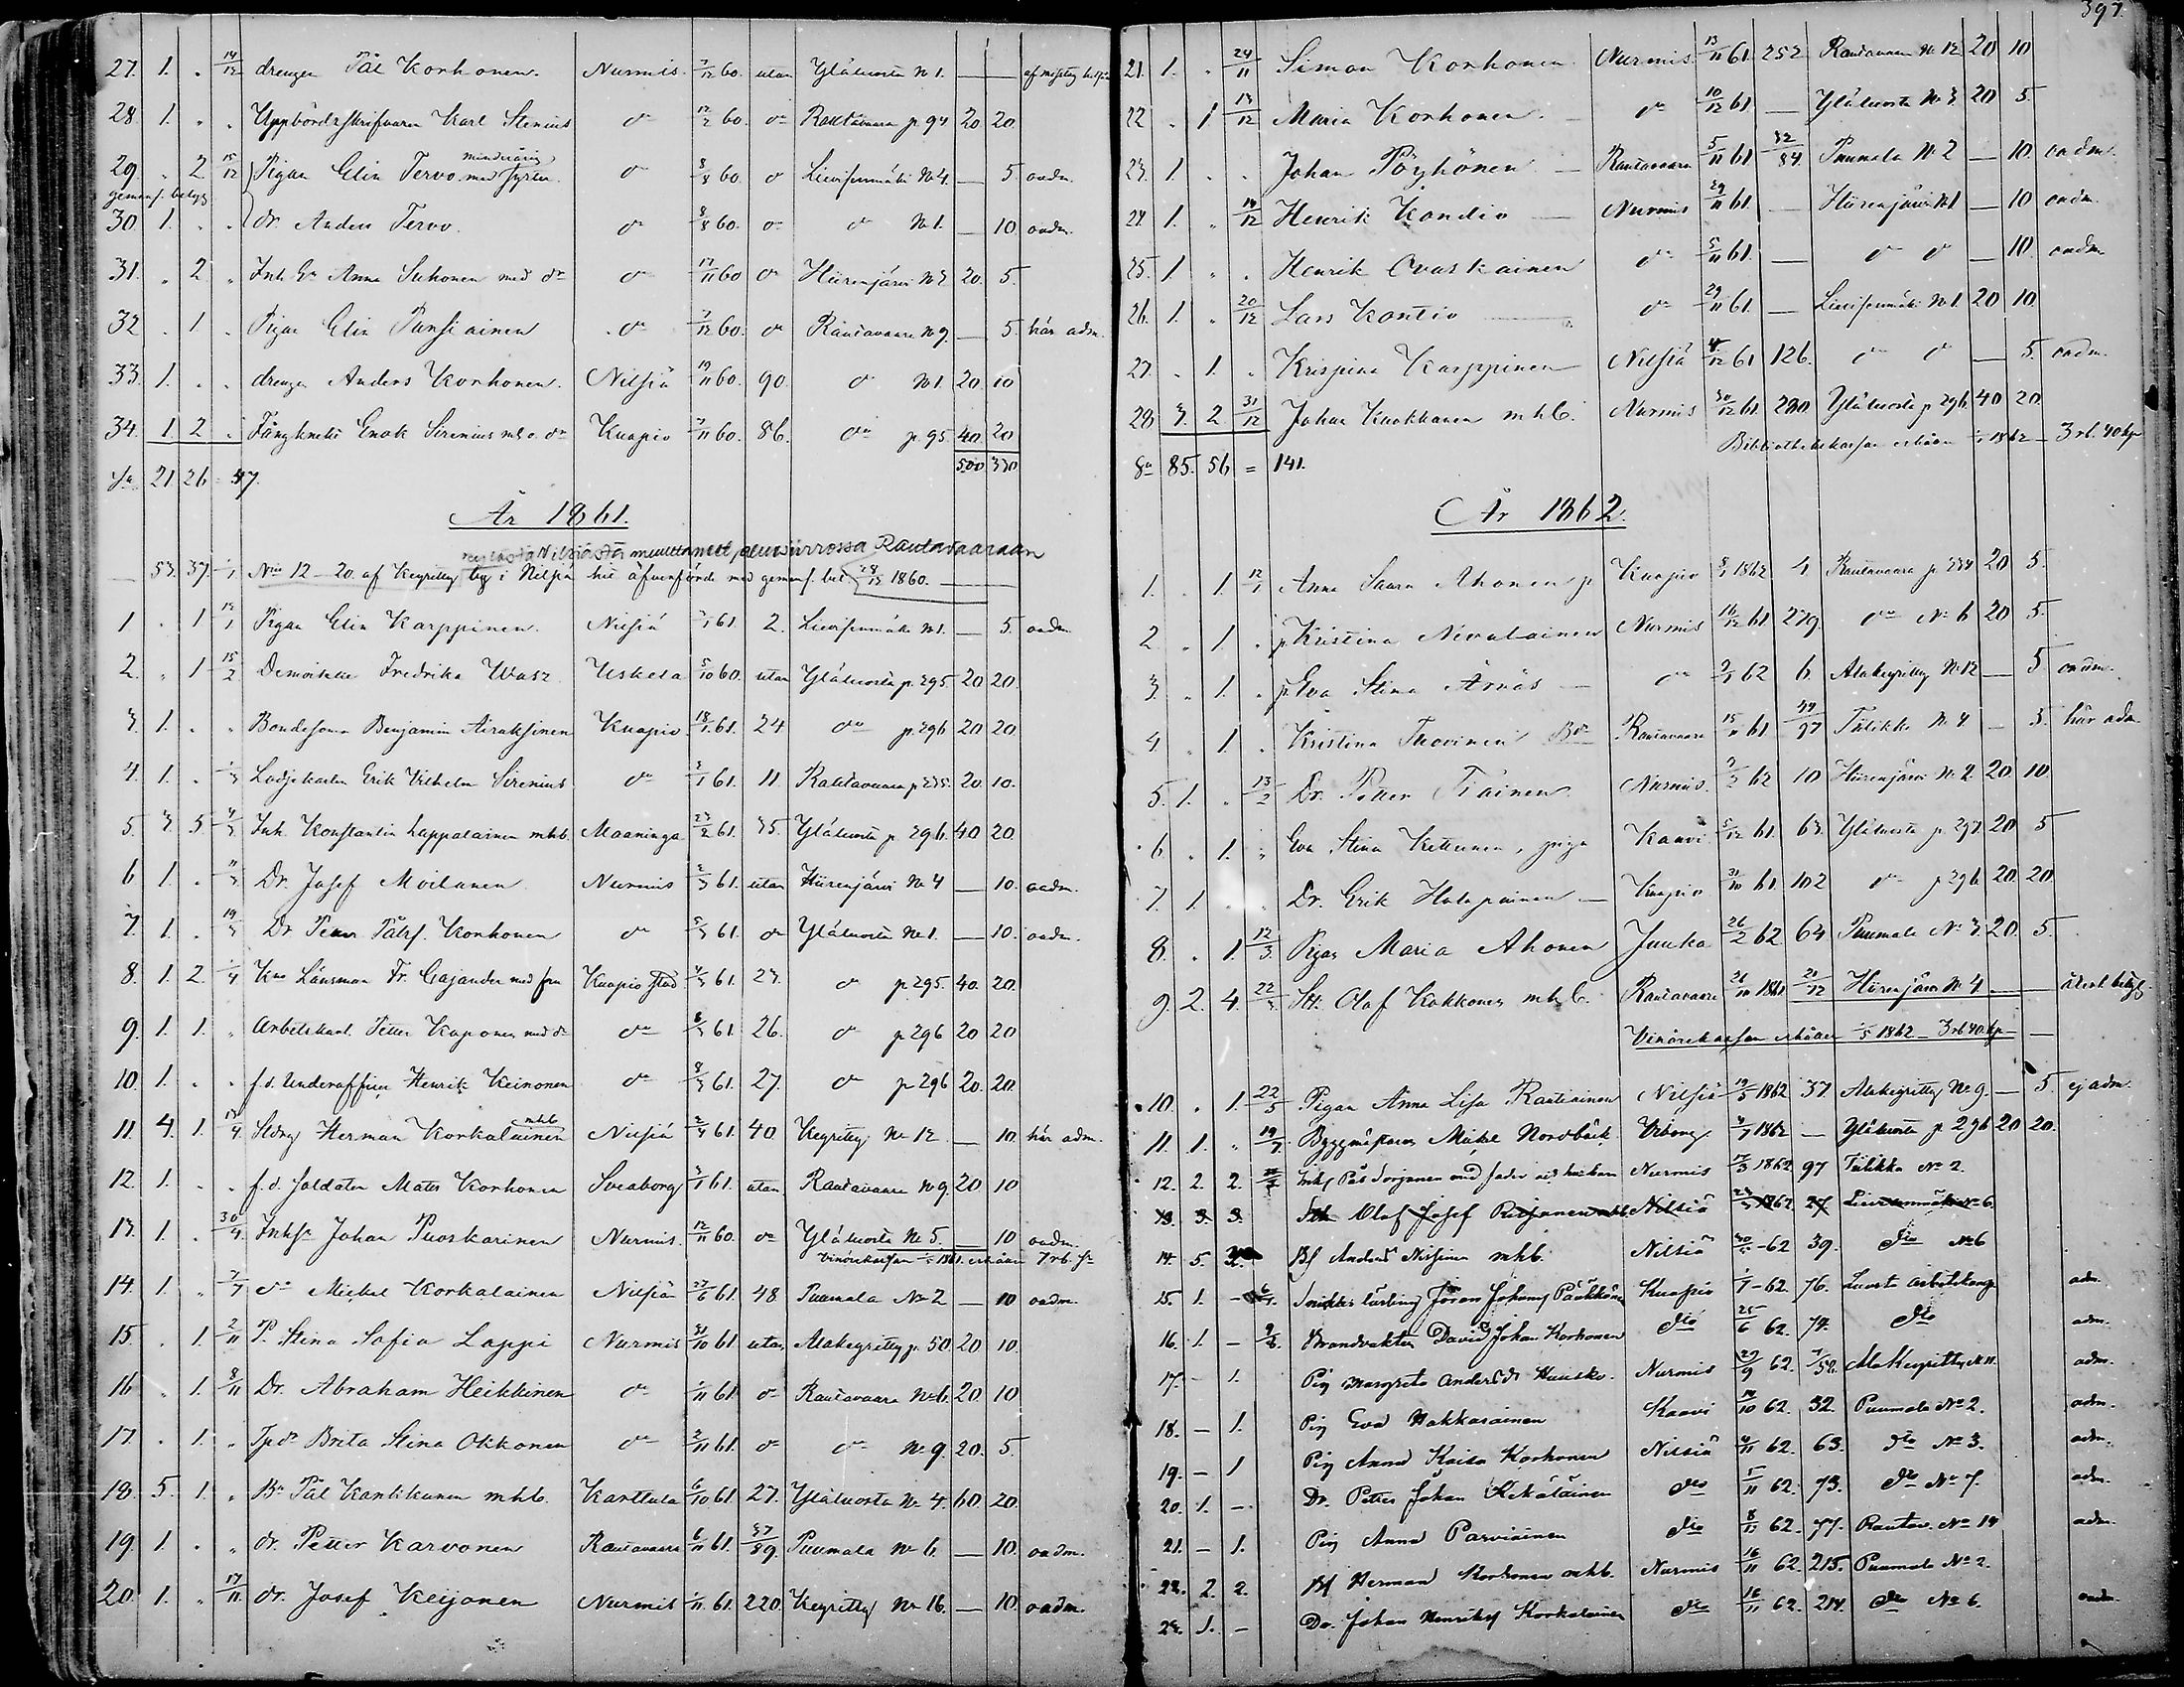 27. 1. " 14/12 drengen Pål Korhonen. Nurmis 7/12 60. utan Yläluosta N 1. —
28. 1. " " Uppbördsskrifvaren Karl Stenius do 12/2 60. do Rautavaara p 94 20 20.
29. " 2 15/12 Pigan Elin Tervo med minderårig syster do 8/8 60. do Lievisenmäki N 4. — 5 oadm.
gemens. betyg
30. 1. " " dr. Anders Tervo. do 8/8 60. do do N 1. — 10 oadm.
31. " 2 " Inh. Ea Anna Suhonen med dr do 17/11 60 do Hiirenjärvi N 3 20. 5.
32 " 1 " Pigan Elin Pansiainen do 7/12 60. do Rautavaara N 9. — 5. här adm.
33. 1. " " drengen Anders Korhonen. Nilsiä 19/11 60. 90. do N 1. 20. 10
34. 1. 2 " Fångknekt Enok Sirenius m. h. o. dr Kuopio 7/11 60. 86. do p. 95 40. 20
Sa 21 26 = 47. 500 330
År 1861.
Nilsiästä muuttaneet pitäjänsiirrossa Rautavaaraan
— 53. 37. Nris 12–20 af Keyritty by i Nilsiä hit öfverförde med gemens. bet. 28/12 1860. —
1 " 1 Pigan Elin Karppinen. Nilsiä 61 2. Lievisenmäki N 1. — 5. oadm.
2. " 1 15/2 Demoiselle Fredrika Wasz Uskela 5/10 60. utan Yläluosta p. 295. 20 20.
3. 1. " " Bondesonen Benjamin Airaksinen Kuopio 18/1 61. 24 do p. 296 20 20
4. 1. " Lodjekarlen Erik Vilhelm Sirenius do 61. 11. Rautavaara p 235. 20. 10.
5. 3. 3. Inh. Konstantin Lappalainen mhb. Maaninga 23/2 61. 35. Yläluosta p. 296. 40 20.
6 1. " Dr. Josef Moilanen Nurmis 2/3 61. utan Hiirenjärvi N 4 — 10. oadm.
7. 1. " 19/3 Dr. Petter Pålsf. Korhonen do 5/3 61. do Yläluosta N 1. — 10. oadm.
8. 1. 2. Kno Länsman Fr. Cajander med fru Kuopio stad 61. 23. do p 295. 40. 20.
9. 1. 1. " Arbetskarl. Petter Kaponen med dr do 8/3 61. 26. do p 296 20 20
10. 1. " " f.d. Underofficer Henrik Keinonen do 8/3 61. 27. do p 296 20. 20.
11. 4. 1. Herman Korkalainen mhb Nilsiä 2/4 61. 40. Keyritty N 12. — 10. här adm.
12. 1. " " f.d. Soldaten Mats Korhonen Sveaborg 61. utan Rautavaara N 9. 20 10
13. 1. " 30/4 Inhs. Johan Puoskarinen Nurmis. 12/11 60. do Yläluosta N 5. — 10 oadm.
Vinörekassan 1861. erhåller 7 rb. sr
14. 1. " 7/7 do Mickel Korkalainen Nilsiä 27/6 61. 48. Puumala N 2 — 10 oadm.
15. " 1. 2/11 P. Stina Sofia Lappi Nurmis 31/10 61 utan Alakeyritty p. 50. 20 10.
16 " 1. 8/11 Dr. Abraham Heikkinen do 11 61. do Rautavaara N 6. 20 10
17. " 1. " Brita Stina Okkonen do 2/11 61. do do N 9. 20. 5.
18. 5. 1. " Bn Pål Karkkunen mhb. Karttula 6/10 61 27. Yläluosta N 4. 60. 20.
19. 1. " " dr. Petter Karvonen Rautavaara 6/11 61. 37/89. Puumala N 6. — 10. oadm.
20. 1. " 17/11 dr. Josef Keijonen Nurmis 11 61. 220. Keyritty N 16. — 10. oadm.
397.
21. 1. " 24/11 Simon Korhonen Nurmis 13/11 61 252 Rautavaara N 12. 20 10
22 " 1 13/12 Maria Korhonen. — do 10/12 61 — Yläluosta N 3 20 5.
23. 1. " " Johan Pöyhönen — Rautavaara 5/11 61 32/84. Puumala N 2 — 10. oadm.
24. 1. " 14/12 Henrik Kondio — Nurmis 29/11 61 — Hiirenjärvi N 1 — 10 oadm.
25. 1 " " Henrik Ovaskainen do 5/11 61. — do do — 10. oadm
26. 1. " 20/12 Lars Kontio do 29/11 61. — Lievisenmäki N 1 20 10.
27. " 1. " Krispina Karppinen Nilsiä 4/12 61 126. do do — 5. oadm.
28 3. 2 31/12 Johan Kuokkanen mhb. Nurmis 30/12 61. 280 Yläluosta p 296 40 20.
Bibliothekskassan erhåller 1862 — 3 rb. 40 kp
Sa 85. 56 = 141.
År 1862.
1. " 1. 12/1 Anna Saara Ahonen p Kuopio 1862 4. Rautavaara p 234 20 5.
2 " 1. " p Kristina Nevalainen Nurmis 16/12 61. 279. do N 6 20 5.
3. " 1. " p Eva Stina Ärväs — do 62 6. Alakeyritty N 12 — 5 oadm.
4 " 1. " Kristina Thovinen Rautavaara 15/11 61. 97 Tiilikka N 4 — 5. här adm
5. 1. " 13/2 Dr. Petter Tiainen Nurmis. 62 10 Hiirenjärvi N 2 20 10.
6 " 1. " Eva Stina Kettunen, piga Kaavi 5/12 61. 63. Yläluosta p. 297. 20 5
7. 1. " " Dr. Erik Halapainen — Kuopio 31/10 61. 102 do p 296 20. 20.
8. " 1. 12/3 Pigan Maria Ahonen Juuka 26/2 62. 64 Puumala N 3. 20. 5.
9. 2. 4. 22/3 Olof Kokkonen mhb. Rautavaara 1861 21/12 Hiirenjärvi N 4 —
Vinörekassan erhåller 5 1862 — 3 rb 40 kp —
10. " 1. 22/5 Pigan Anna Lisa Rautiainen Nilsiä 19/5 1862. 37. Alakeyritty N 9. — 5. ej adm.
11. 1. " 19/7. Byggmästaren Mickel Nordbäck Viborg 7 1862 — Yläluosta p 296 20 20.
12. 2. 2. Inhs. Pål Sorjonen med fader och hustru Nurmis 17/3 1862. 97 Tiilikka No 2.
13. 3. 3. Olof Josef Nilsiä 1862. Lievisenmäki No 6.
14. 5. Bf Anders Nissinen mhb. Nilsiä -62 39. dto No 6
15. 1. - Snickar lärling Jöran Johansf Pääkkönen Kuopio 7 -62. 76. Luosta arbetskarl adm.
16. 1. - Brandvakten David Johan Korhonen dito 25/6 62. 74. dto adm.
17. - 1. Pig Margreta Andersdr Huusko. Nurmis 29/9 62. 7/52. Ala Keyritty N 11. adm.
18. - 1. Pig Eva Hakkarainen Kaavi 14/10 62. 32. Puumala No 2. adm.
19. - 1 Pig Anna Kaisa Korhonen Nilsiä 4/11 62. 63. dto No 3. adm.
20. 1. - Dr. Petter Johan Rekäläinen dto 5/11 62. 73. dto No 7. adm.
21. - 1. Pig Anna Parviainen dto 8/11 62. 77. Rautav. No 14 adm.
22. 2. 2. Bf Herman Korhonen mhb. Nurmis 16/11 62. 215. Puumala No 2.
23. 1. - Dr. Johan Henriksf Korkalainen dto 16/11 62. 214. dto No 6. oadm.